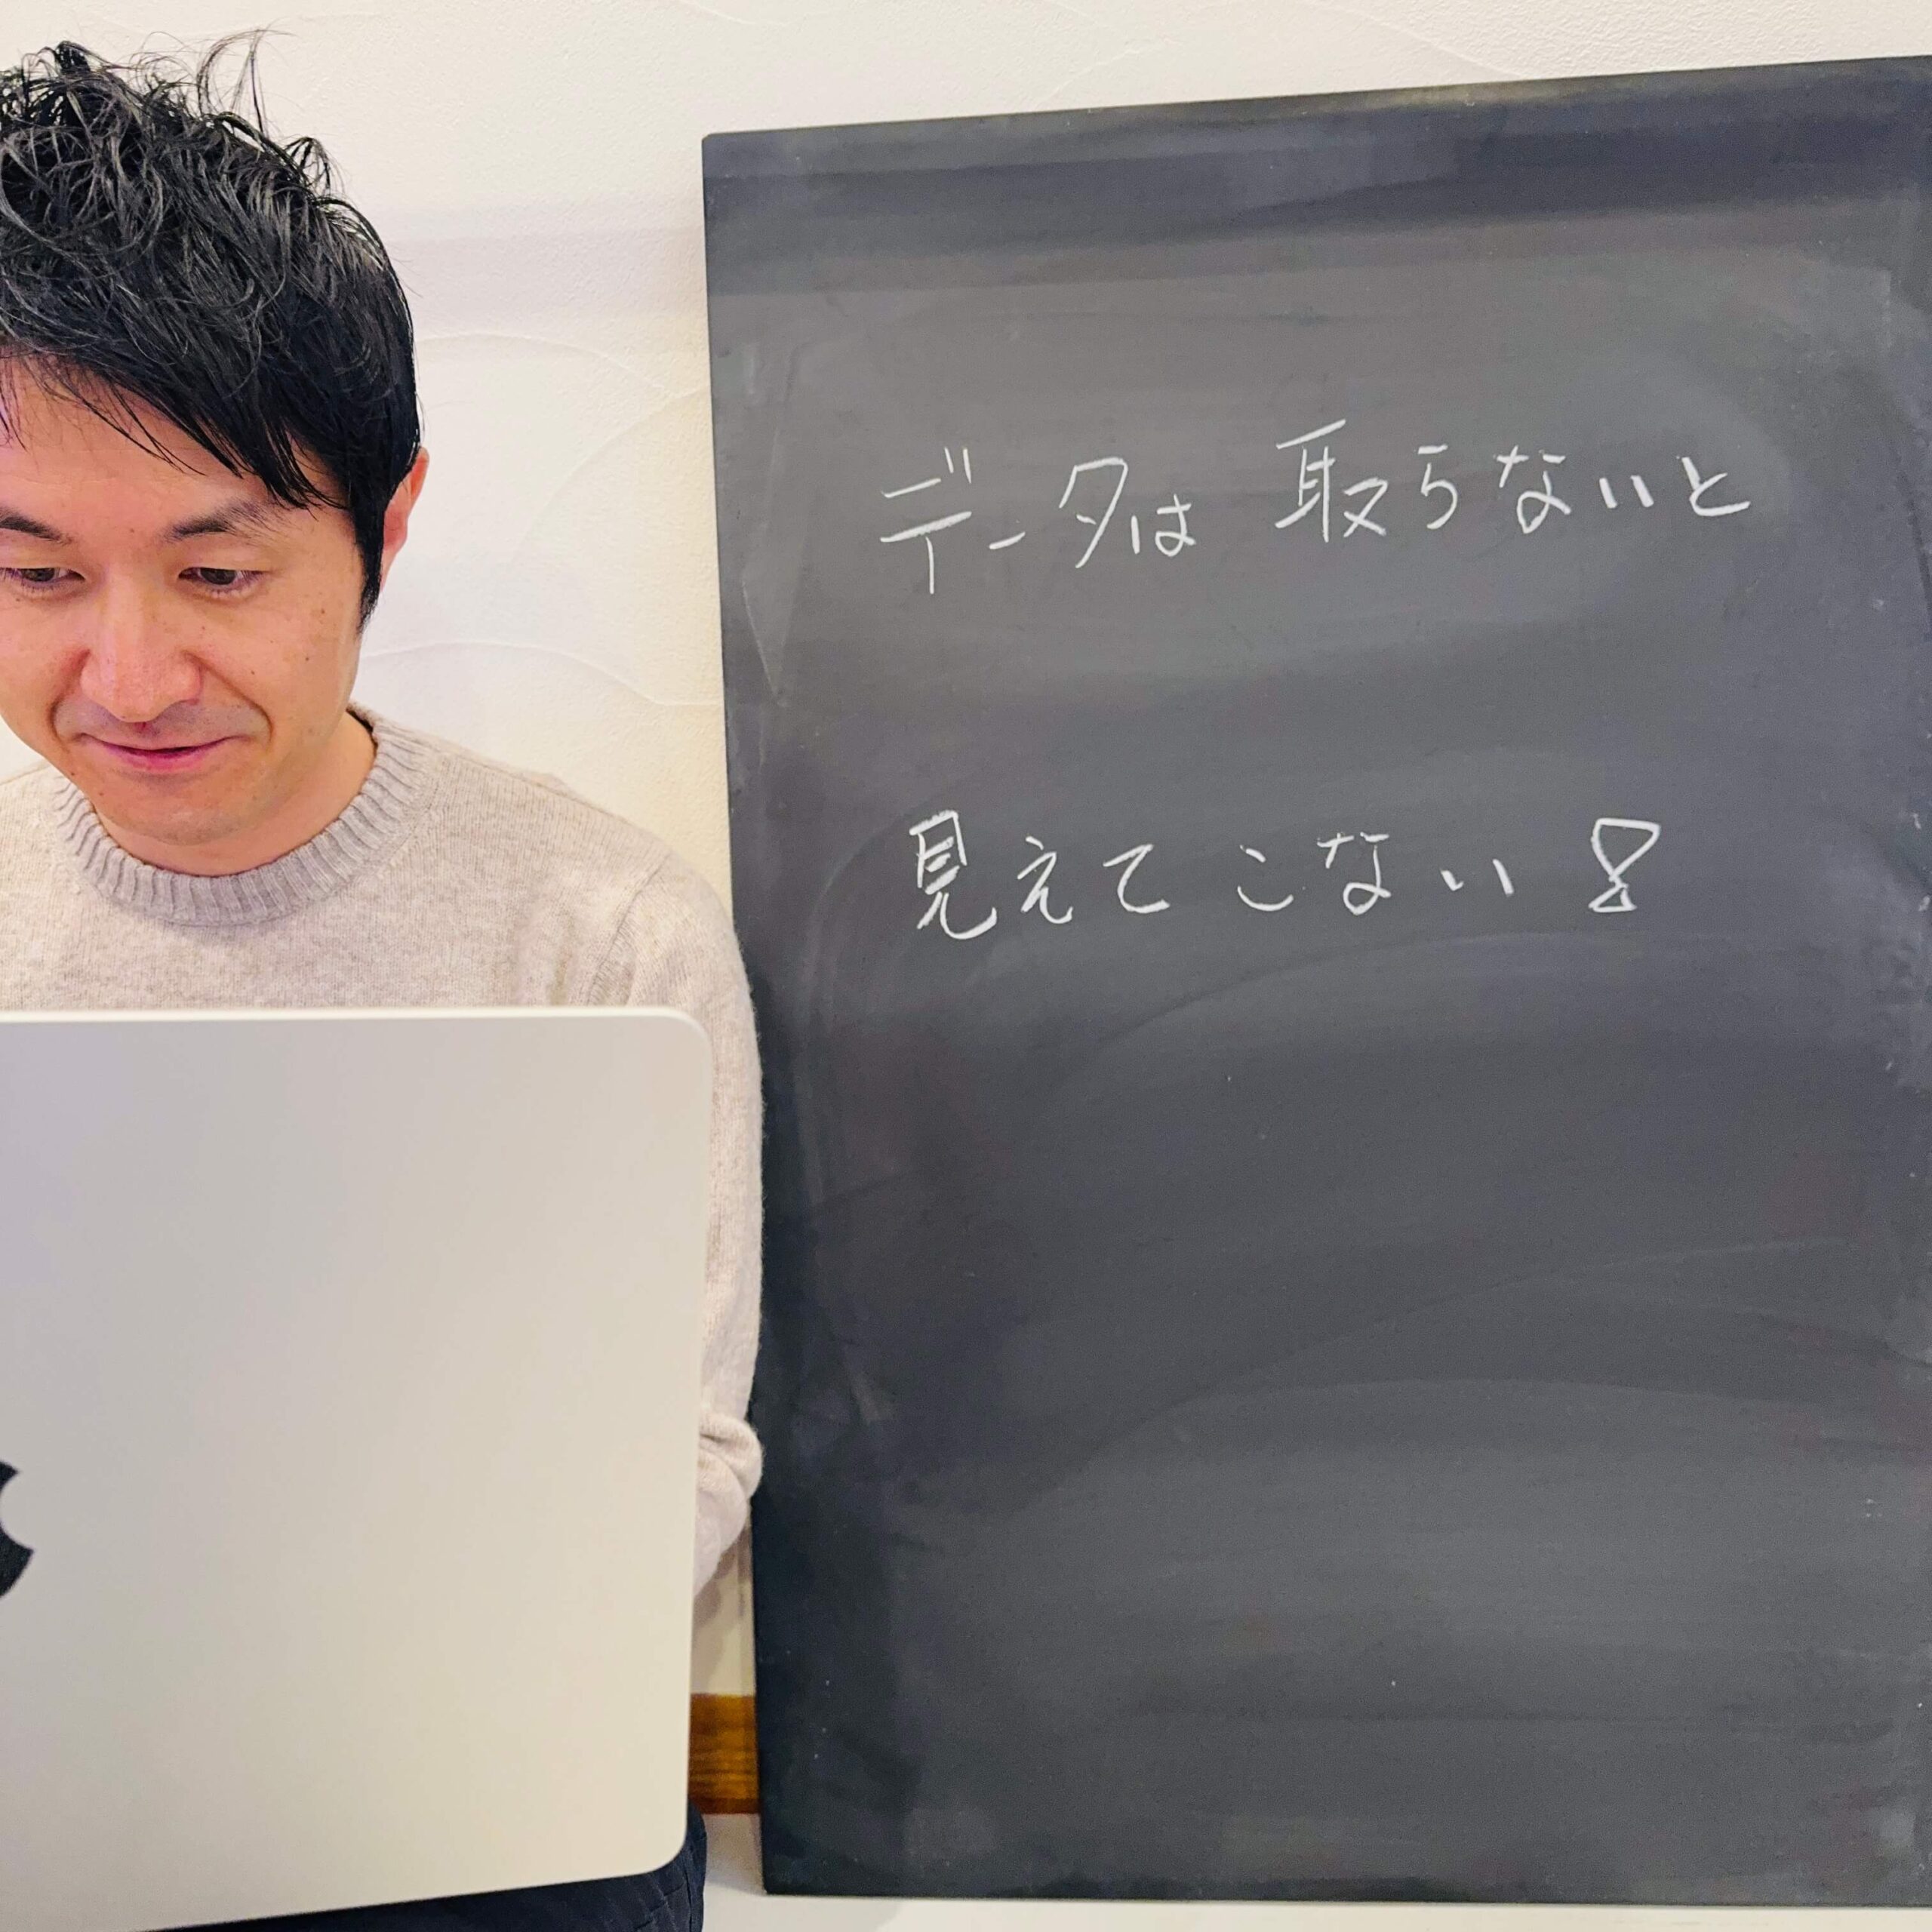 データは 取らないと
見えてこない!